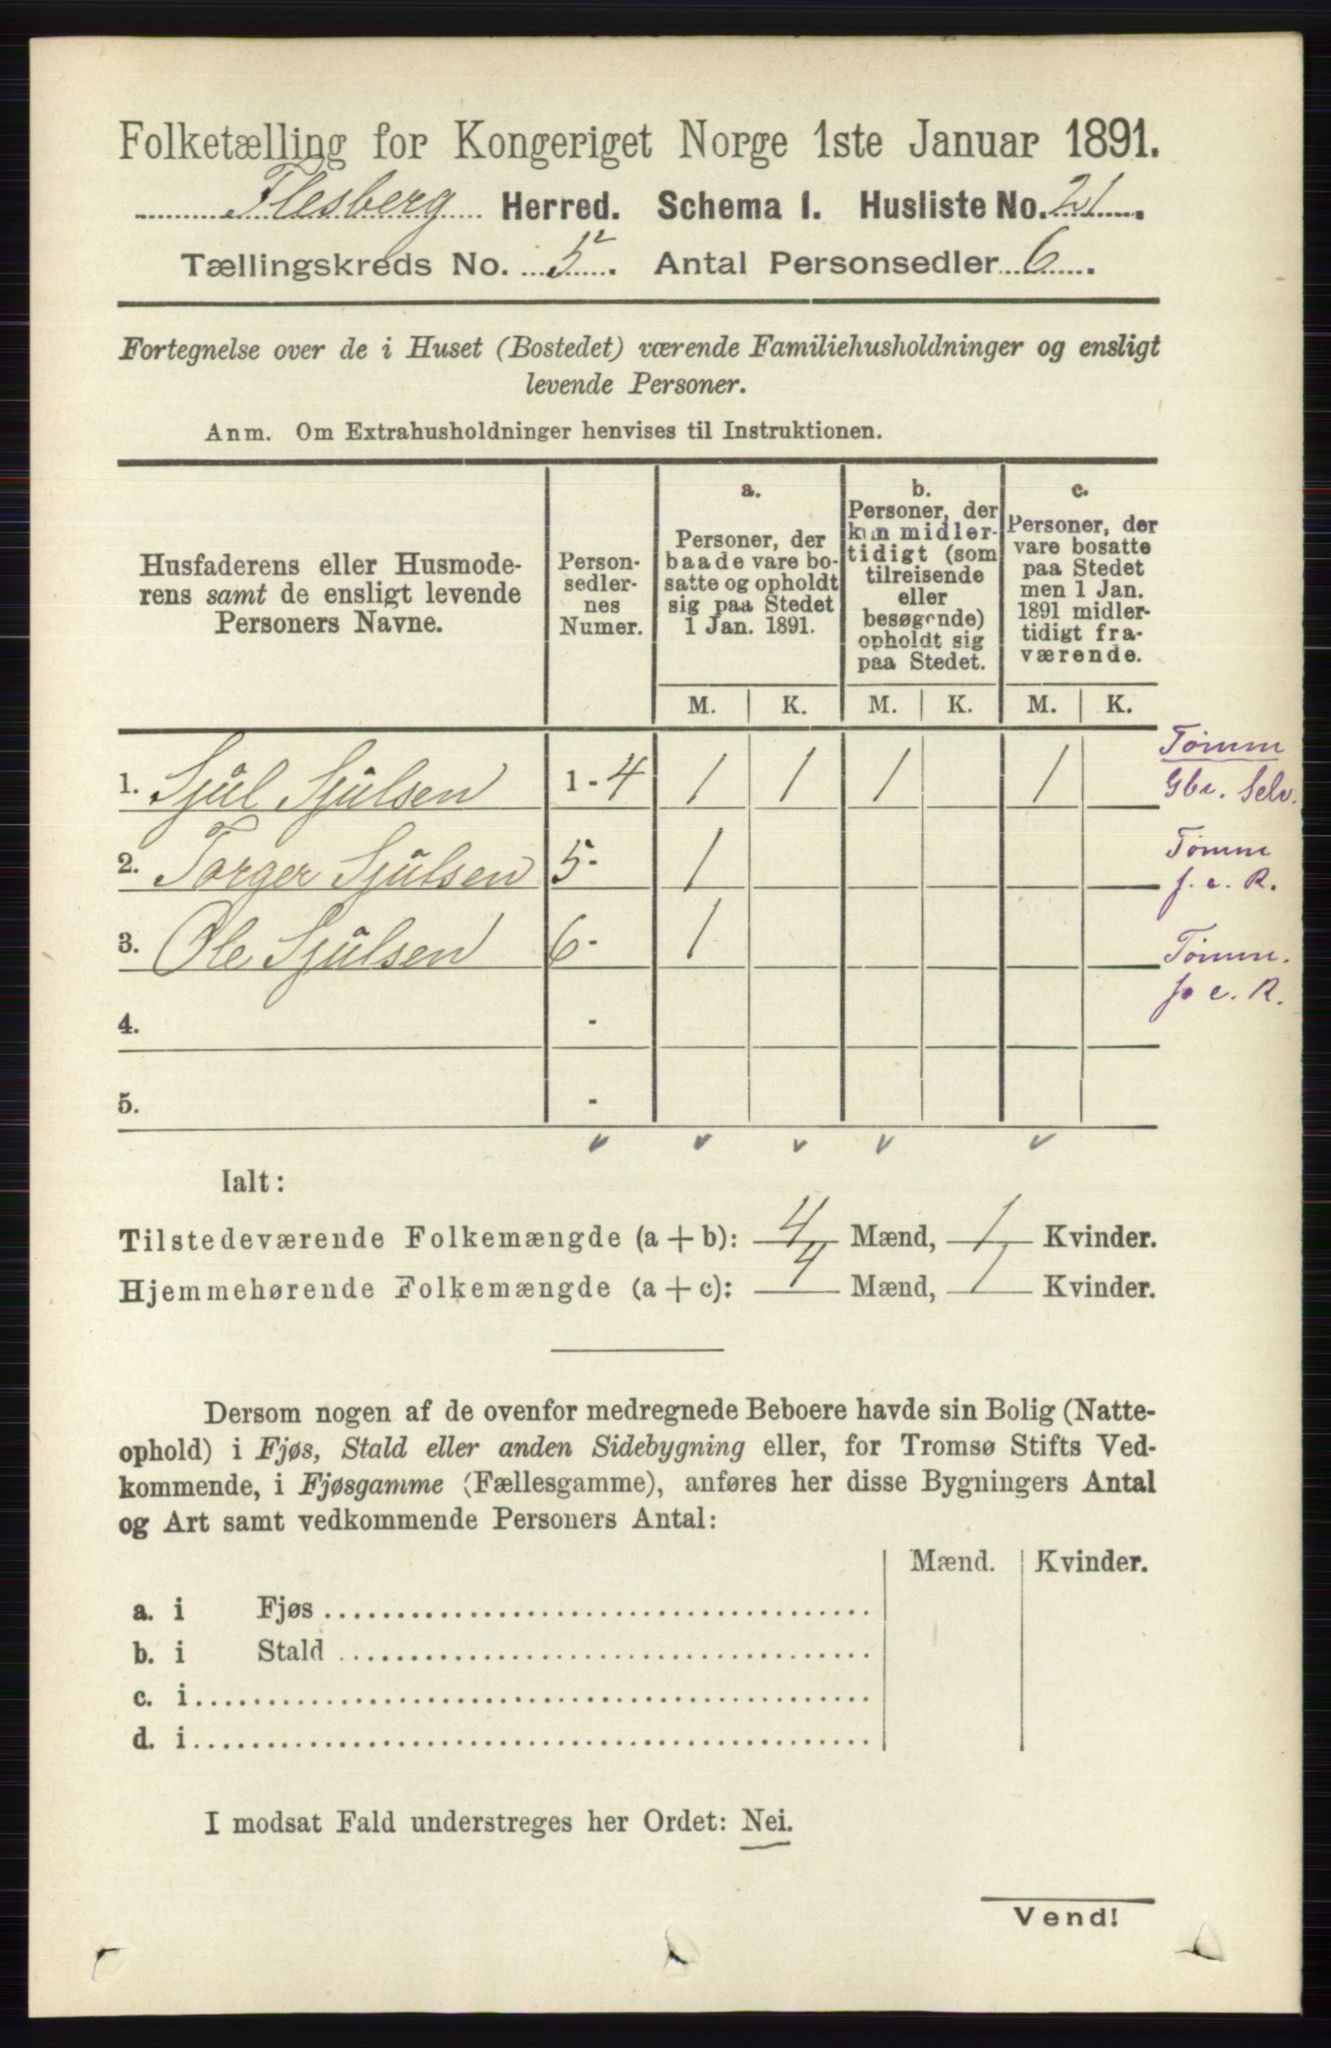 Folketælling for Kongeriget Norge 1ste Januar 1891.
Flesberg Herred. Schema 1. Husliste No. 21.
Tællingskreds No. 5. Antal Personsedler 6.
Fortegnelse over de i Huset (Bostedet) værende Familiehusholdninger og ensligt
levende Personer.
Anm. Om Extrahusholdninger henvises til Instruktionen.
Husfaderens eller Husmode-
rens samt de ensligt levende
Personers Navne.
Person-
sedler-
nes
Numer.
a.
Personer, der
baade vare bo-
satte og opholdt
sig paa Stedet
1 Jan. 1891.
b.
Personer, der
kun midler-
tidigt (som
tilreisende
eller
besøgende)
opholdt sig
paa Stedet.
c.
Personer, der
vare bosatte
paa Stedet
men 1 Jan.
1891 midler-
tidigt fra-
værende.
M. K. M. K. M. K.
1. Sjul Sjulsen 1-4 1 1 1 1
Tømm
Gbr. Selv.
2. Torger Sjulsen 5- 1
Tømm
f. c. R.
3. Ole Sjulsen 6- 1
Tømm.
f. c. R.
4. -
5. -
Ialt:
Tilstedeværende Folkemængde (a + b): 4 Mænd, 1 Kvinder.
Hjemmehørende Folkemængde (a + c): 4 Mænd, 1 Kvinder.
Dersom nogen af de ovenfor medregnede Beboere havde sin Bolig (Natte-
ophold) i Fjøs, Stald eller anden Sidebygning eller, for Tromsø Stifts Ved-
kommende, i Fjøsgamme (Fællesgamme), anføres her disse Bygningers Antal
og Art samt vedkommende Personers Antal:
Mænd. Kvinder.
a. i Fjøs
b. i Stald
c. i
d. i
I modsat Fald understreges her Ordet: Nei.
Vend!